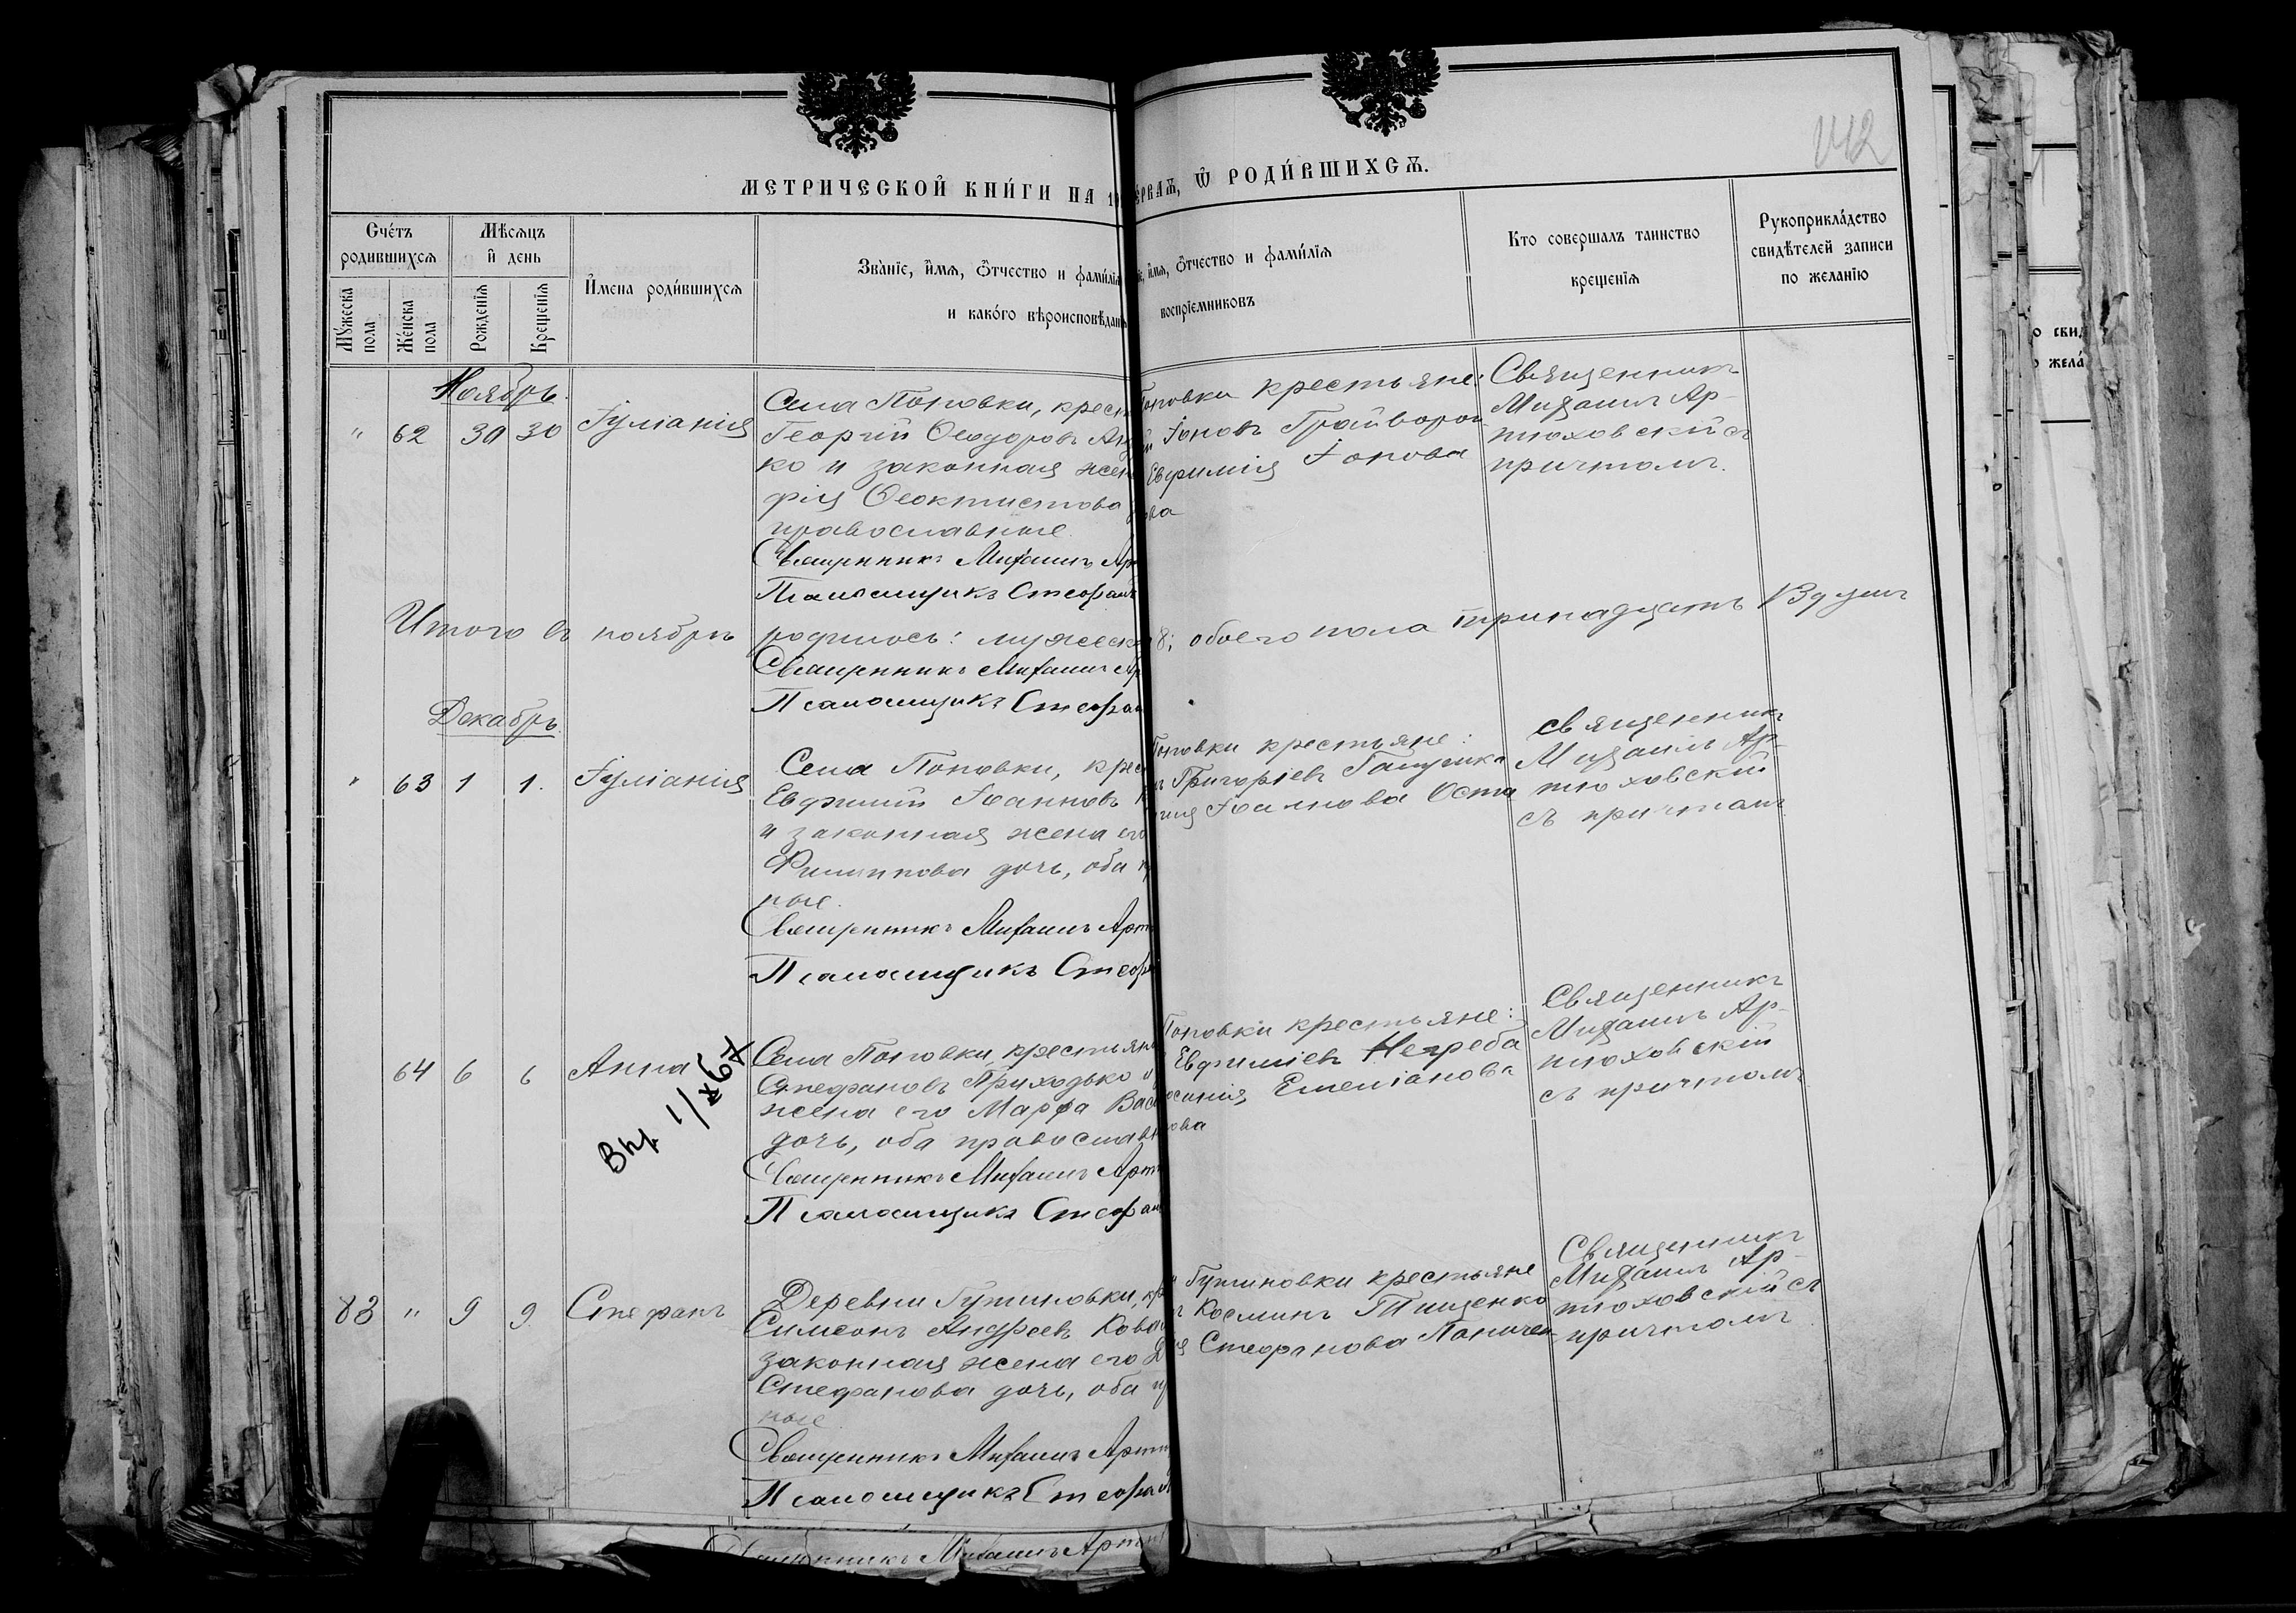 142
МЕТРИЧЕСКОЙ КНИ́ГИ НА 19
ЕРВАѦ, Ѿ РОДИ́ВШИХСѦ.
Сче́тъ родившихсѧ
Мѣсѧцъ и҆ день
И҆мена роди́вшихсѧ
Зва̀нїе, и҆́мѧ, ѻ҆́тчество и фами́лїѧ
и како́го вѣроисповѣданї
Му́жеска пола
Же́нска пола
Рожденїѧ
Крещенїѧ
їе, и҆́мѧ, ѻ҆́тчество и фами́лїѧ
воспрїемниковъ
Кто совершалъ таинство
крещенїѧ
Рукоприкла́дство
свидѣтелей записи
по желанїю
Ноябрь.
" 62 30 30 Іуліанія
Села Поповки, крест
Георгій Ѳеодоровъ
ко и законная жен
фія Ѳеоктистова
православные.
Священникъ Михаилъ Ар
Псаломщикъ Стефанъ
Поповки крестьяне:
Іоновъ Грайворон
Евфимія Іонова
ова
Священникъ
Михаилъ Ар-
тюховскій съ
причтомъ.
Итого въ ноябрѣ родилось: мужеск
8; обоего пола тринадцать 13 душъ
Священникъ Михаилъ Ар
Псаломщикъ Стефан
Декабрь.
" 63 1 1. Іуліанія
Села Поповки, крес
Евфимій Іоанновъ
и законная жена его
Филиппова дочь, оба п
ные.
Священникъ Михаилъ Арт
Псаломщикъ Стеф
Поповки крестьяне:
Григоріевъ
Іоаннова Оста
Священникъ
Михаилъ Ар-
тюховскій
съ причтомъ.
64 6 6 Анна
Села Поповки, крестьян
Стефановъ Приходько и
жена его Марфа Вас
дочь, оба православн
Священникъ Михаилъ Арт
Псаломщикъ Стефан
Поповки крестьяне:
Евфиміевъ Негреба
Емеліанова
ова
Священникъ
Михаилъ Ар-
тюховскій
съ причтомъ
83 " 9 9. Стефанъ
Деревни Гутиновки, кр
Симеонъ Андреевъ Ковал
законная жена его
Стефанова дочь, оба п
ные.
Священникъ Михаилъ Артю
Псаломщикъ Стефан
крестьяне
Косминъ Тищенко
Стефанова
Священникъ
Михаилъ Ар-
тюховскій съ
причтомъ
Священникъ Михаилъ Артю